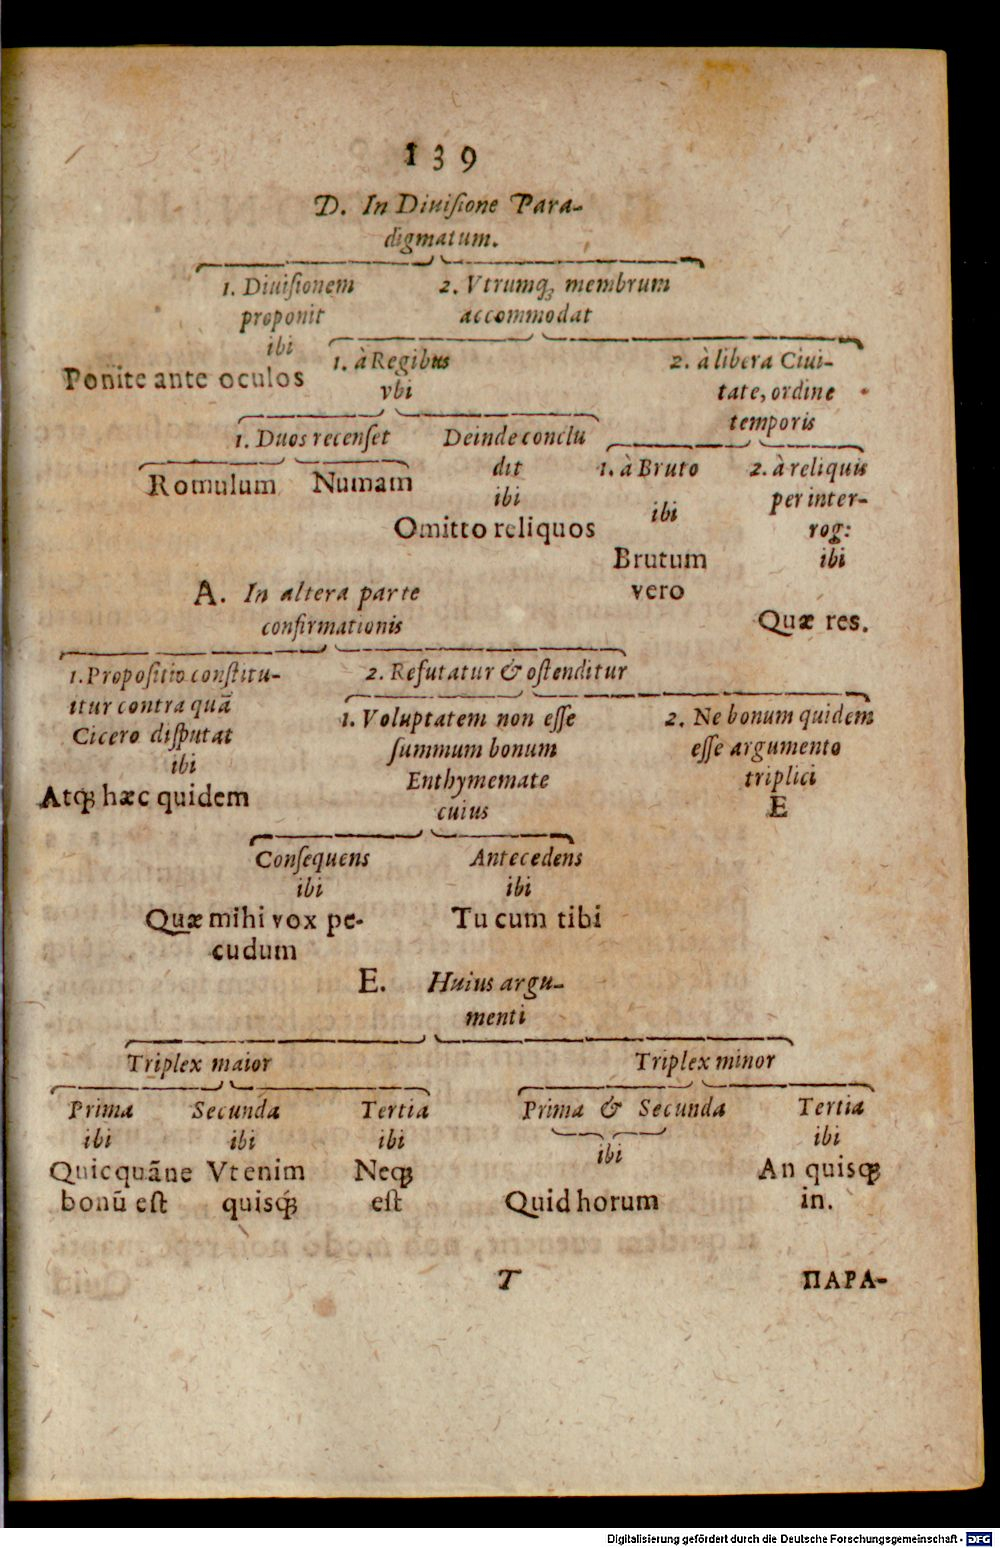 139
D. In Diuiſione Para-
digmatum.
1. Diuiſionem
proponit
ibi
Ponite ante oculos
2. Vtrumq; membrum
accommodat
1. à Regibus
vbi
1. Duos recenſet
Romulum
Numam
Deinde conclu
dit
ibi
Omitto reliquos
2. à libera Ciui-
tate, ordine
temporis
1. à Bruto
ibi
Brutum
vero
2. à reliquis
per inter-
rog:
ibi
Quæ res.
A. In altera parte
confirmationis
1. Propoſitio conſtitu-
itur contra quā
Cicero diſputat
ibi
Atq; hæc quidem
2. Refutatur & oſtenditur
1. Voluptatem non eſſe
ſummum bonum
Enthymemate
cuius
Conſequens
ibi
Quæ mihi vox pe-
cudum
Antecedens
ibi
Tu cum tibi
2. Ne bonum quidem
eſſe argumento
triplici
E
E. Huius argu-
menti
Triplex maior
Prima
ibi
Quicquāne
bonū eſt
Secunda
ibi
Vt enim
quisq́;
Tertia
ibi
Neq;
eſt
Triplex minor
Prima & Secunda
ibi
Quid horum
Tertia
ibi
An quisq;
in.
T
ΠΑΡΑ-
Digitalisierung gefördert durch die Deutsche Forschungsgemeinschaft - DFG